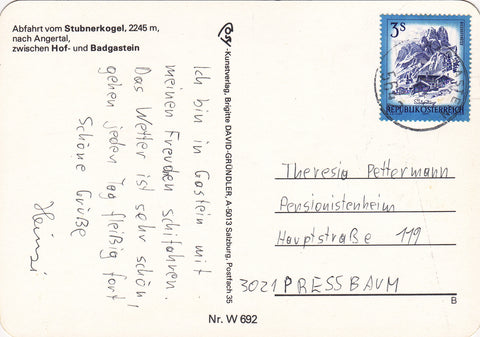 Abfahrt vom Stubnerkogel, 2245 m,
nach Angertal,
zwischen Hof- und Badgastein
Ich bin in Gastein mit
meinen Freuden schifahren.
Das Wetter ist sehr schön,
gehen jeden Tag fleißig fort
Schöne Grüße
Heinzi
Cosy-Kunstverlag, Brigitte DAVID-GRÜNDLER, A-5013 Salzburg, Postfach 35
3 S
REPUBLIK ÖSTERREICH
Theresia Pettermann
Pensionistenheim
Hauptstraße 119
3021 PRESSBAUM
B
Nr. W 692